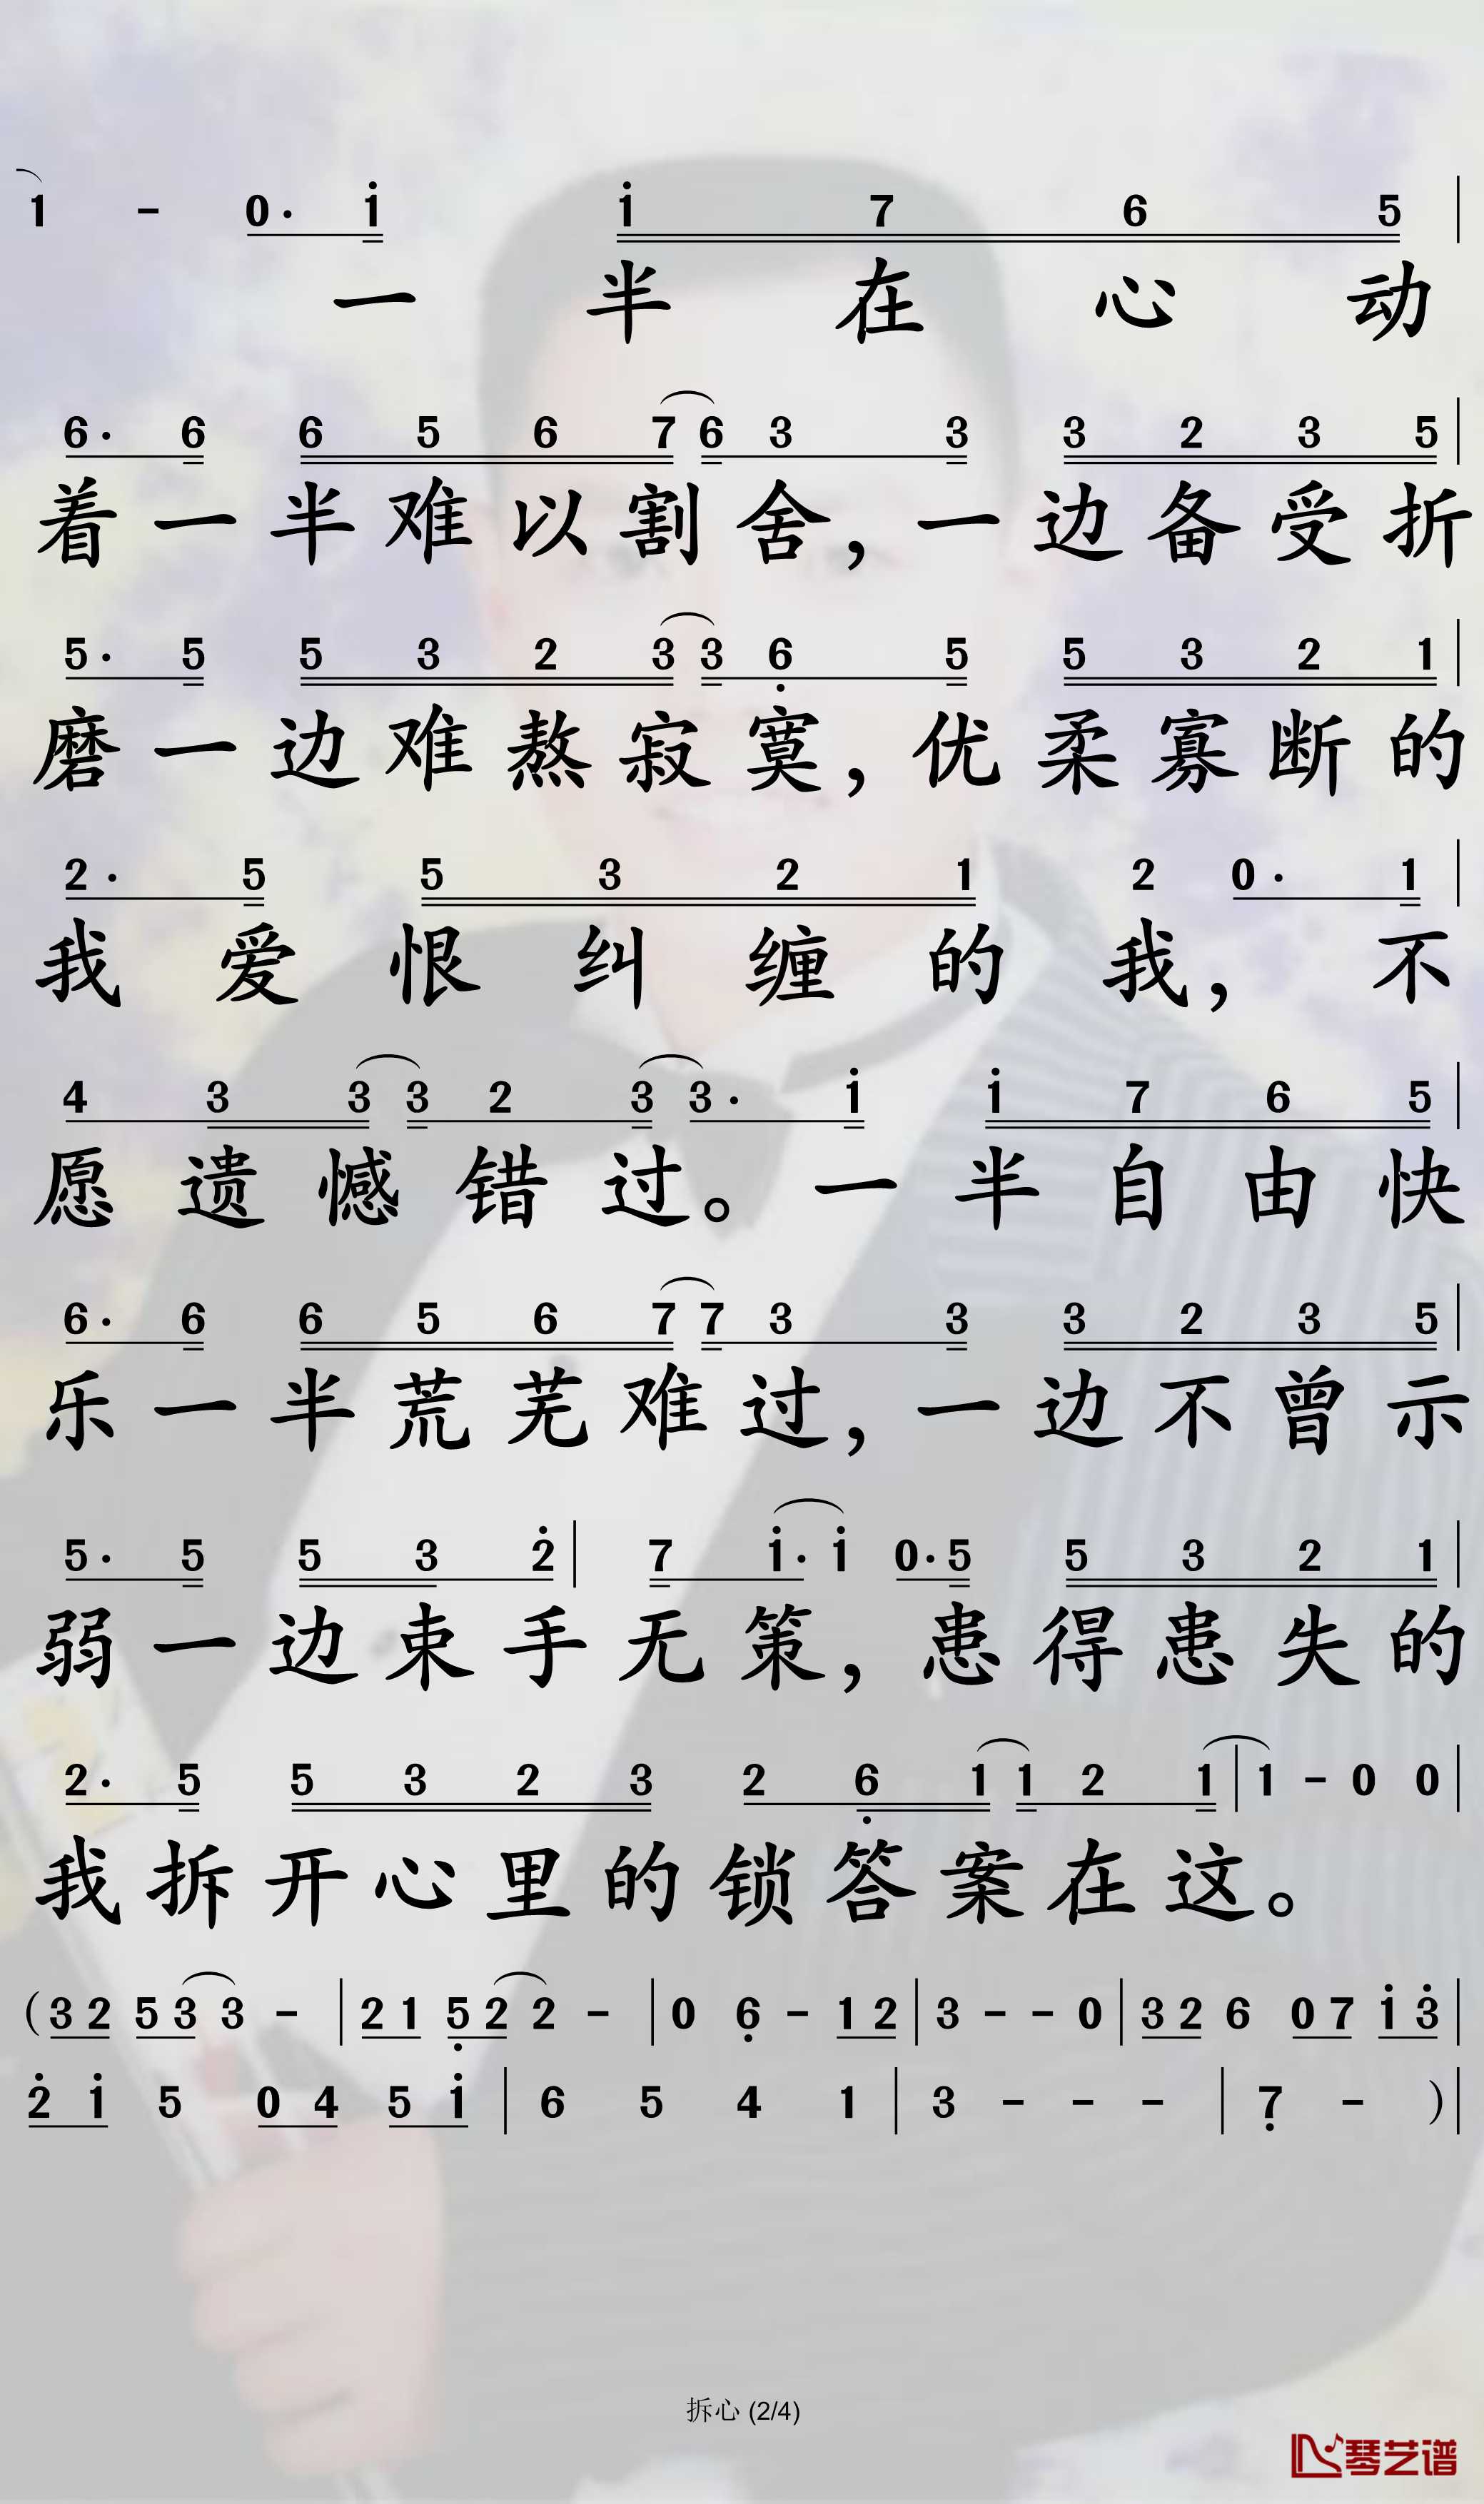 1 - 0· 1 1 7 6 5
一 半 在 心 动
6· 6 6 5 6 7 6 3 3 3 2 3 5
着 一 半 难 以 割 舍， 一 边 备 受 折
5· 5 5 3 2 3 3 6 5 5 3 2 1
磨 一 边 难 熬 寂 寞， 优 柔 寡 断 的
2· 5 5 3 2 1 2 0· 1
我 爱 恨 纠 缠 的 我， 不
4 3 3 3 2 3 3· 1 1 7 6 5
愿 遗 憾 错 过。 一 半 自 由 快
6· 6 6 5 6 7 7 3 3 3 2 3 5
乐 一 半 荒 芜 难 过， 一 边 不 曾 示
5· 5 5 3 2 | 7 1· 1 0· 5 5 3 2 1
弱 一 边 束 手 无 策， 患 得 患 失 的
2· 5 5 3 2 3 2 6 1 1 2 1 | 1 - 0 0
我 拆 开 心 里 的 锁 答 案 在 这。
( 3 2 5 3 3 - | 2 1 5 2 2 - | 0 6 - 1 2 | 3 - - 0 | 3 2 6 0 7 1 3 |
2 1 5 0 4 5 1 | 6 5 4 1 | 3 - - - | 7 - ) |
拆心 (2/4)
琴艺谱